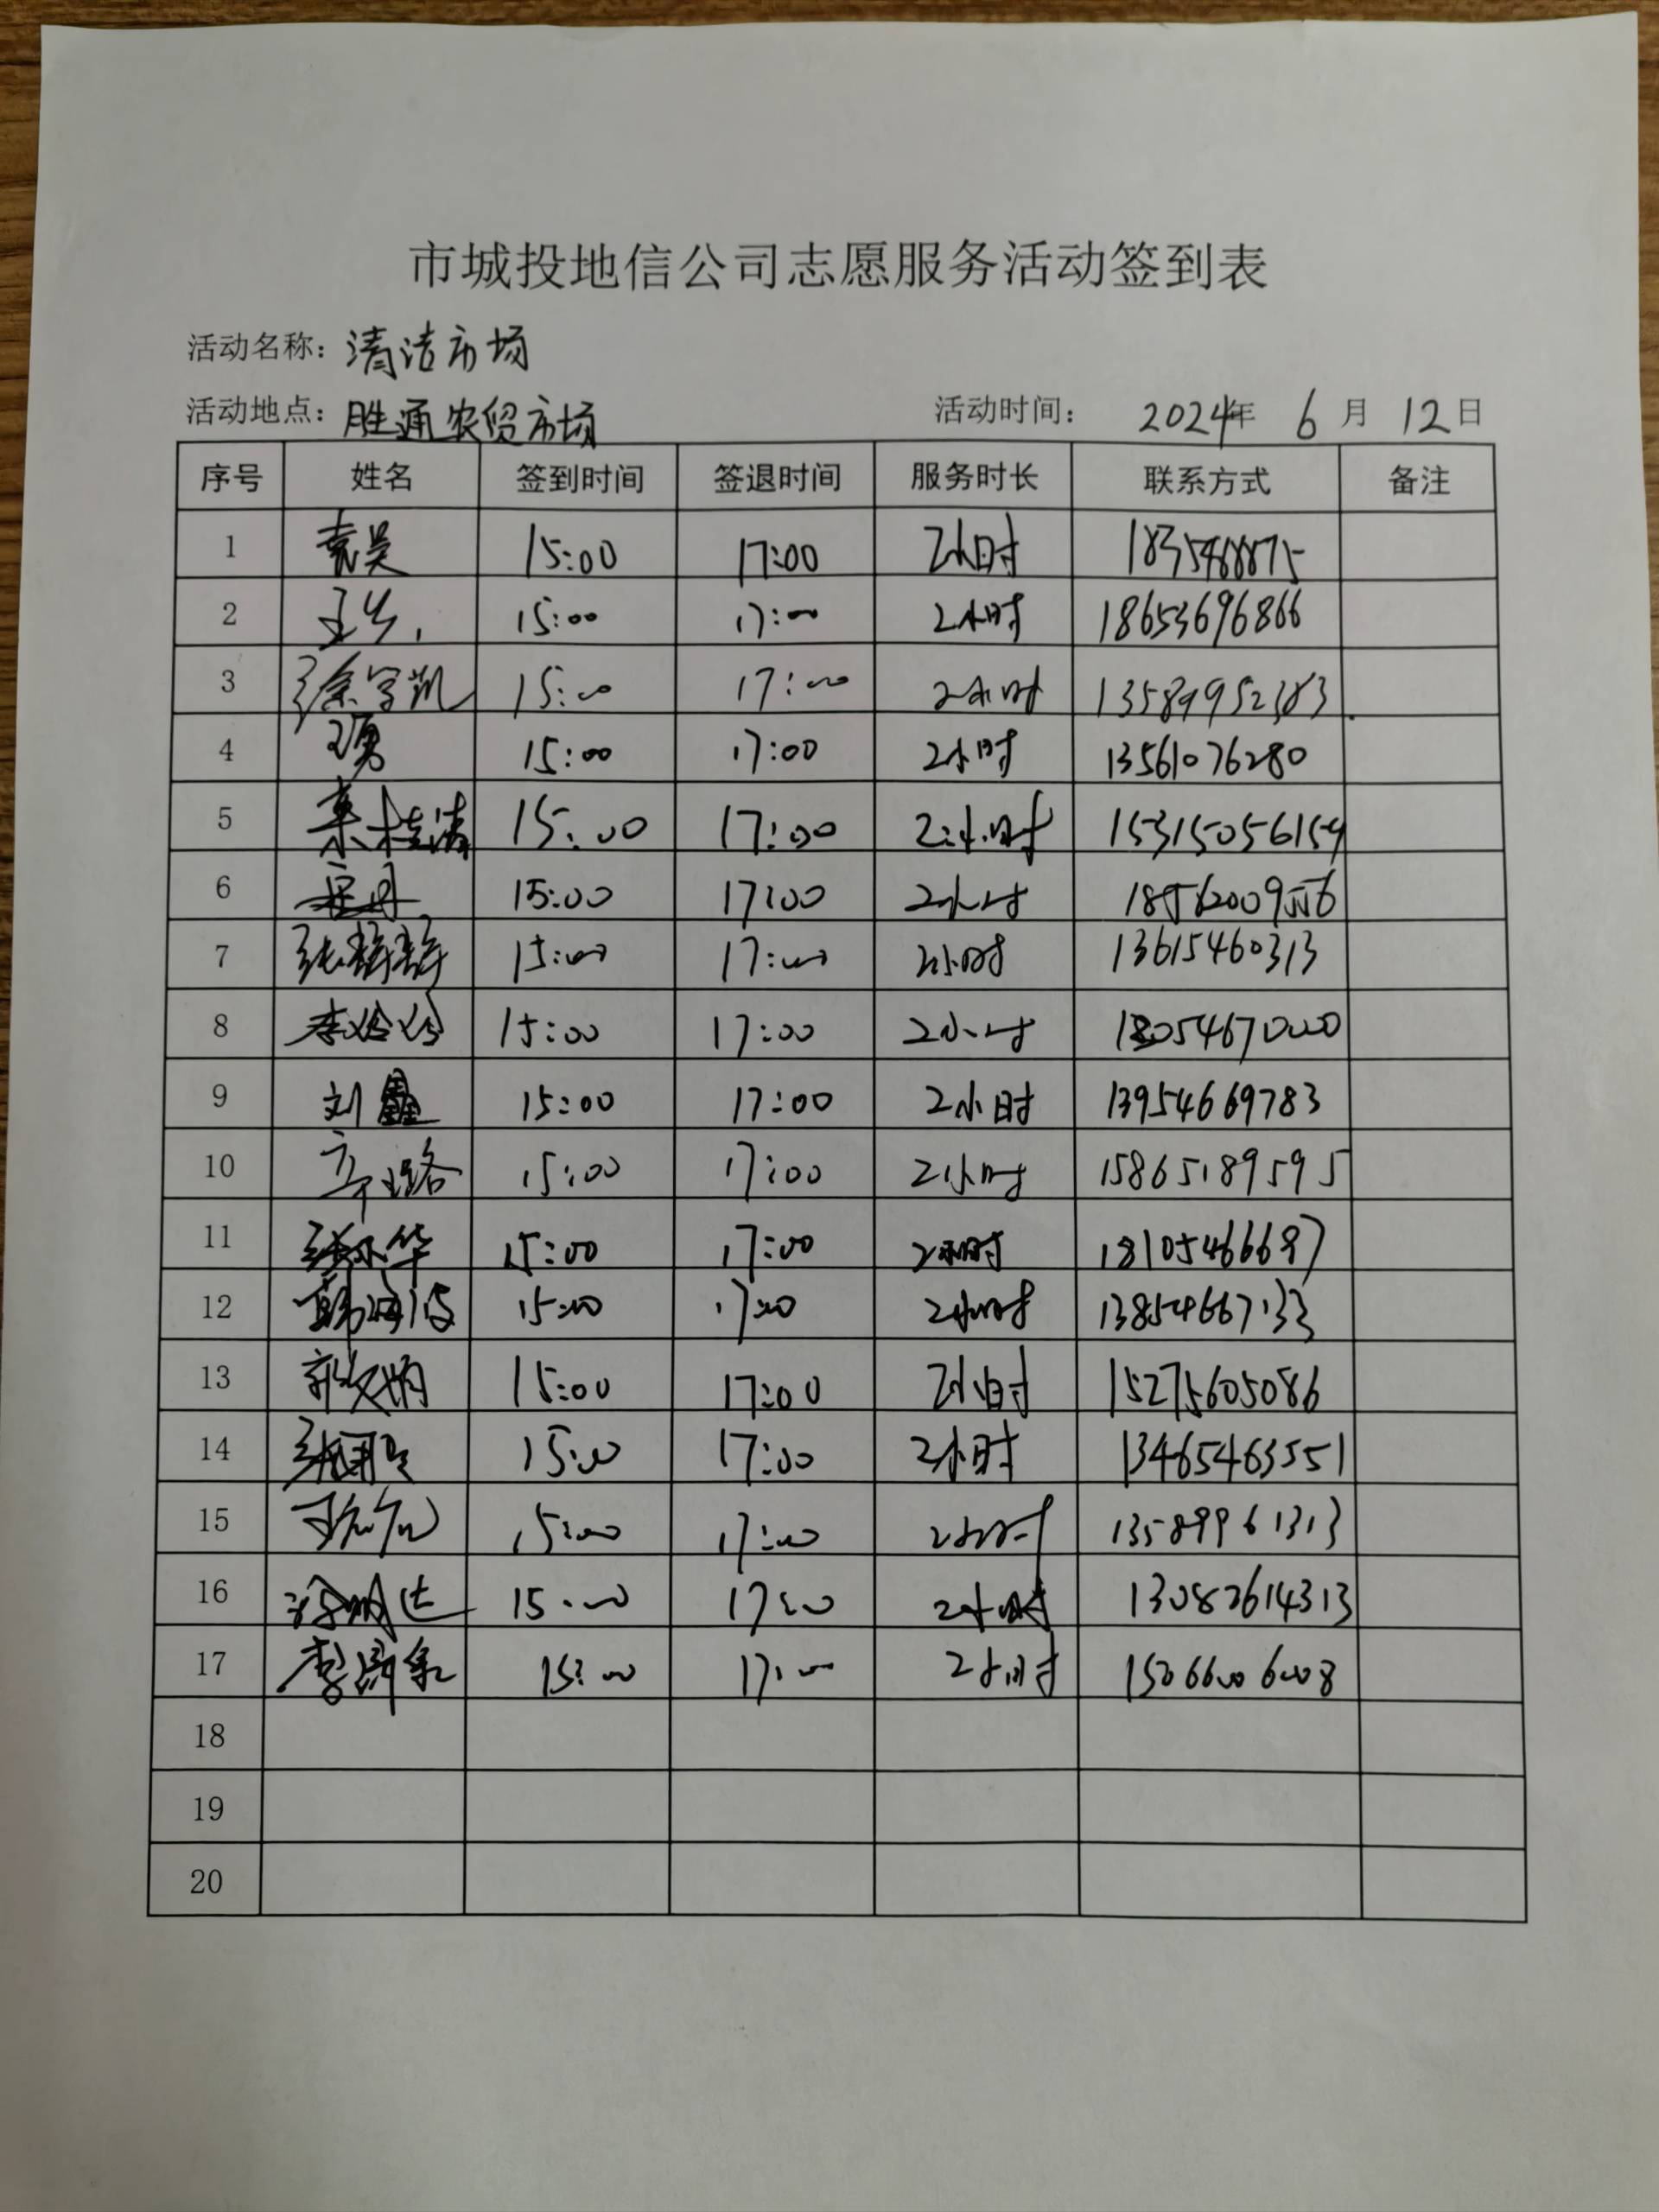 市城投地信公司志愿服务活动签到表
活动名称：清洁市场
活动地点：胜通农贸市场 活动时间： 2024年 6月 12日
序号 姓名 签到时间 签退时间 服务时长 联系方式 备注
1 袁昊 15:00 17:00 2小时
2 15:00 17:00 2小时 18653696866
3 徐学凯 15:00 17:00 2小时 13589952383
4 王勇 15:00 17:00 2小时 13561076280
5 15:00 17:00 2小时 15315056154
6 15:00 17:00 2小时 18562009556
7 张静静 15:00 17:00 2小时 13615460313
8 李玲玲 15:00 17:00 2小时 18054670000
9 刘鑫 15:00 17:00 2小时 13954669783
10 15:00 17:00 2小时 15865189595
11 15:00 17:00 2小时 18105466697
12 韩海波 15:00 17:00 2小时 13854667133
13 郭文娟 15:00 17:00 2小时 15275605086
14 15:00 17:00 2小时 13465463551
15 15:00 17:00 2小时 13589961313
16 15:00 17:00 2小时 13082614313
17 15:00 17:00 2小时 15066006008
18
19
20